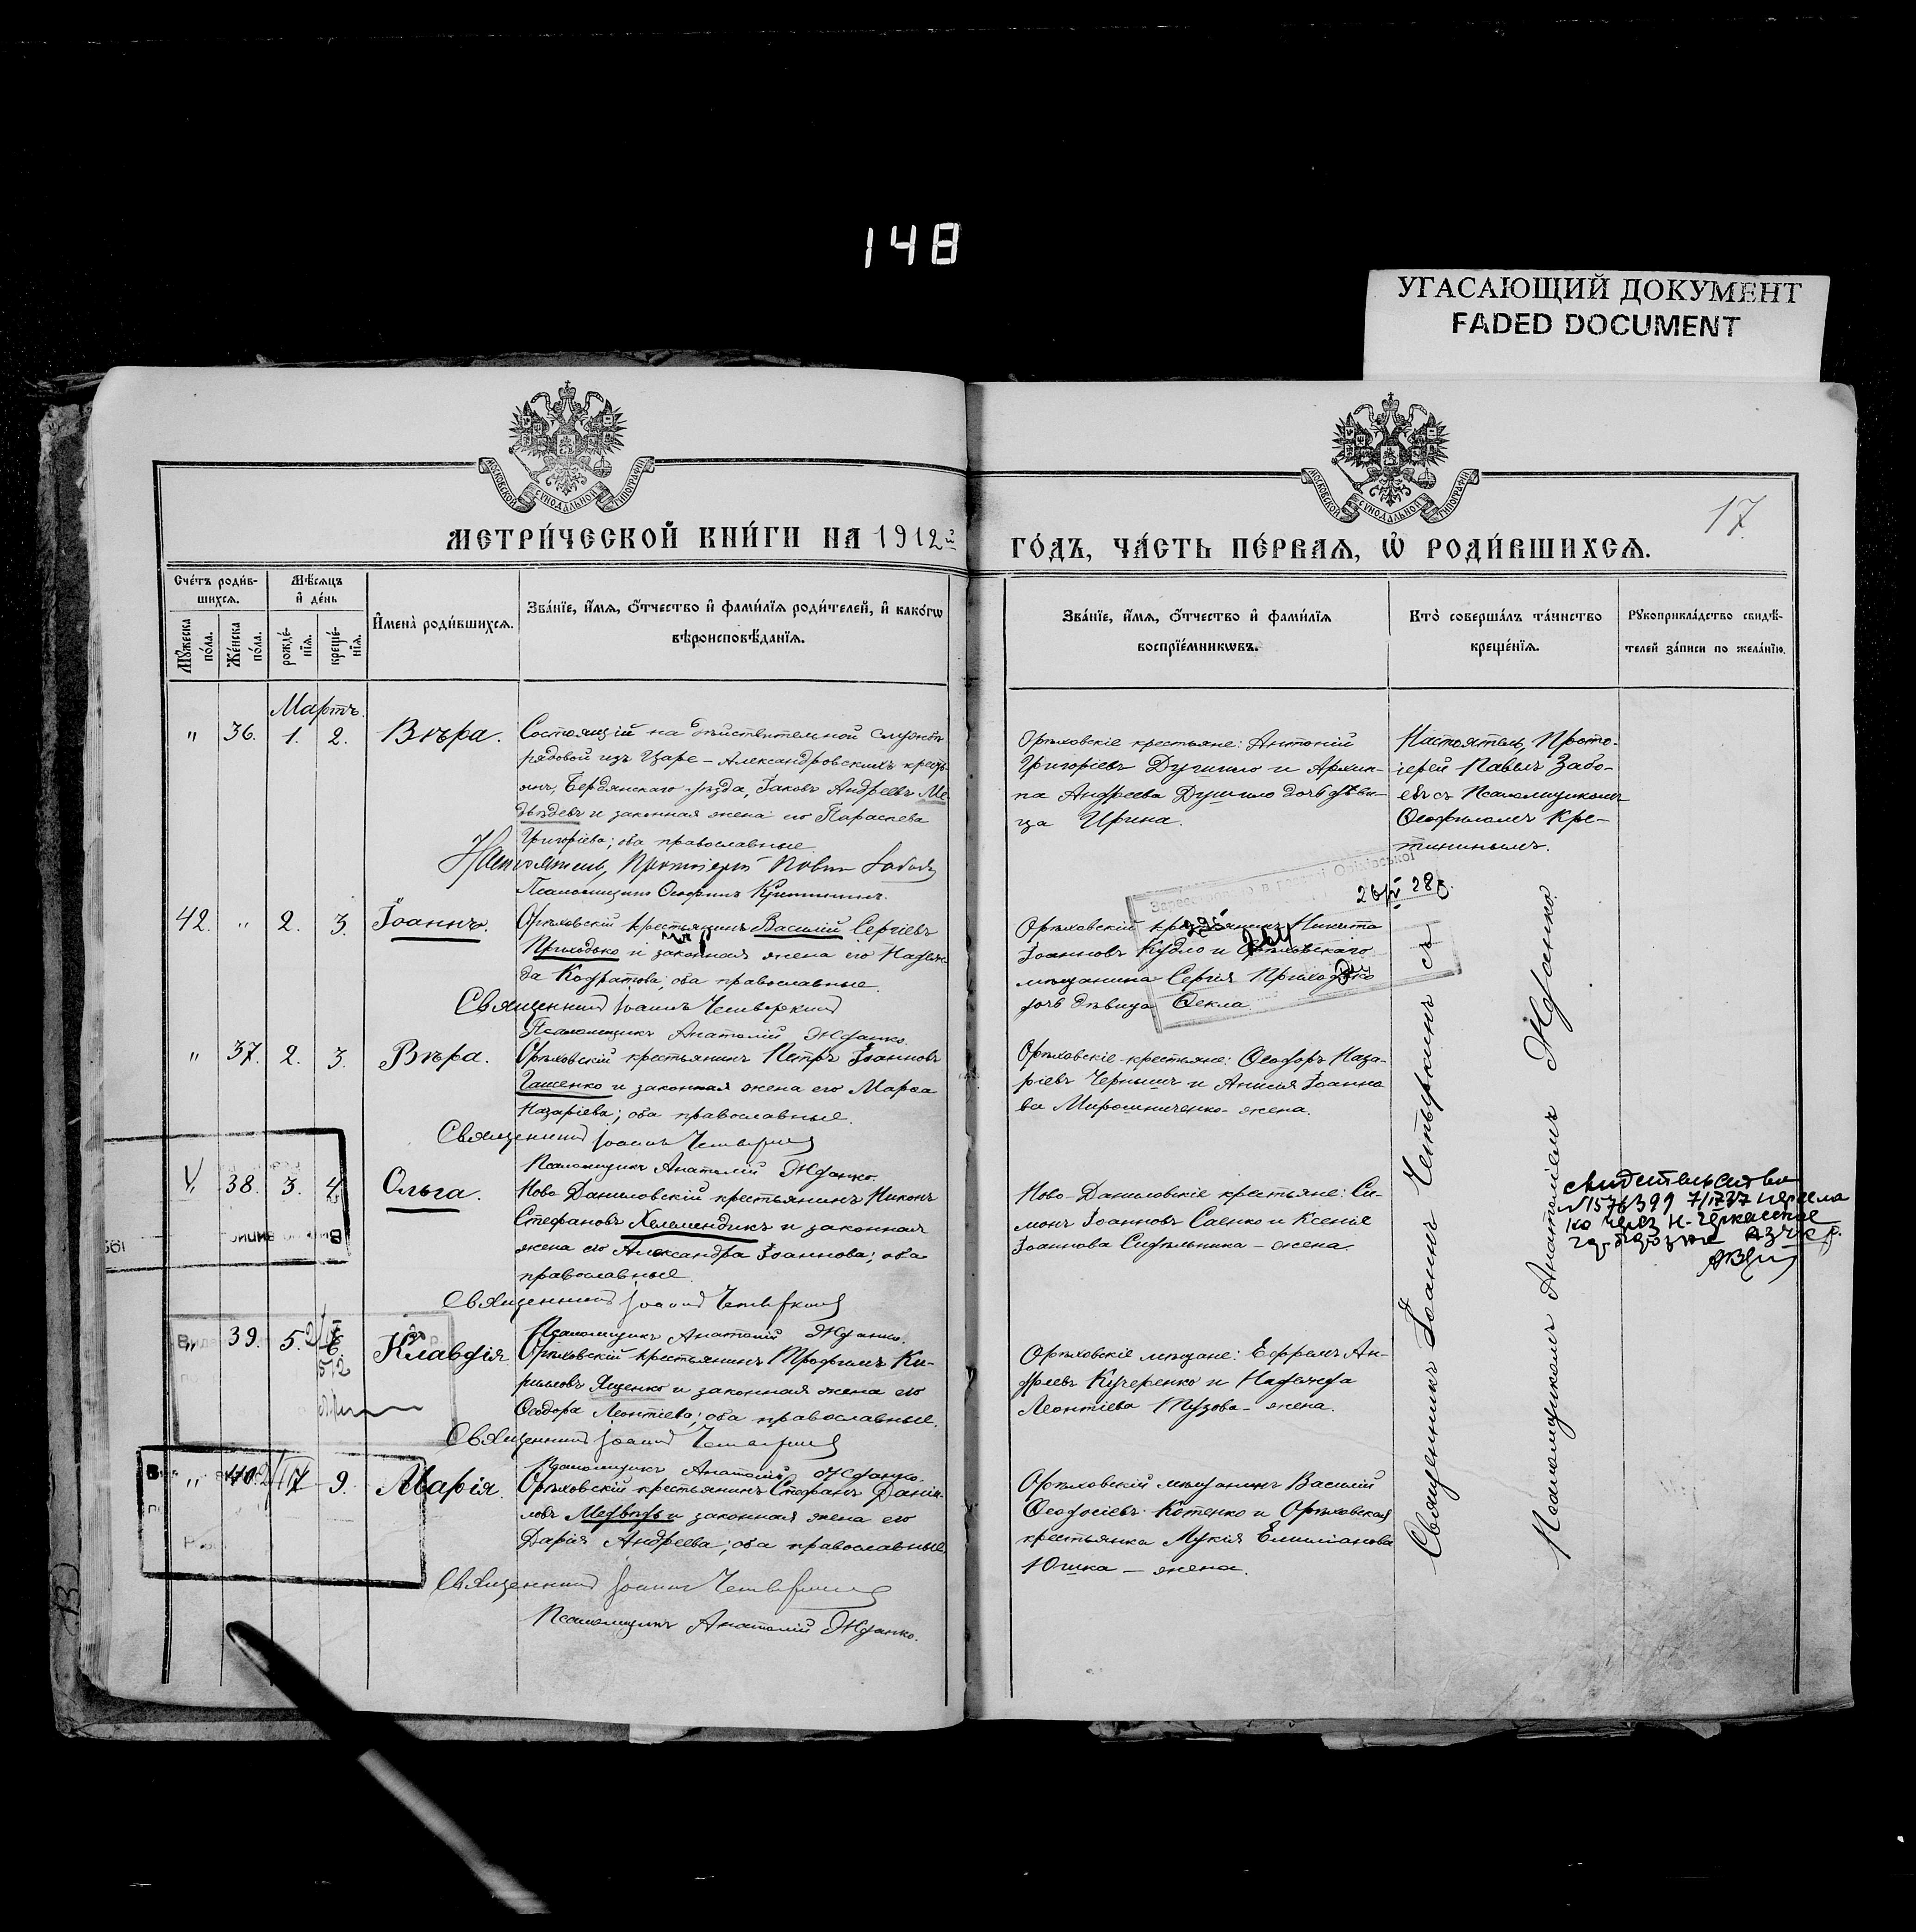 148
УГАСАЮЩИЙ ДОКУМЕНТ
FADED DOCUMENT
МОСКОВСКОЙ СУНОДАЛЬНОЙ ТИПОГРАФІИ
МОСКОВСКОЙ СУНОДАЛЬНОЙ ТИПОГРАФІИ
17
МЕТРИ́ЧЕСКОЙ КНИ́ГИ НА 1912й
ГО́ДЪ, ЧА́СТЬ ПЕ́РВАЯ, Ѽ РОДИ́ВШИХСЯ.
Сче́тъ роди́в-
шихся.
Мѣ́сяцъ
и҆ де́нь
Му́жеска
по́ла.
Же́нска
по́ла.
рожде́-
нїя.
креще́-
нїя.
И҆мена̀ роди́вшихся.
Зва́нїе, и҆́мя, о҆́тчество и҆ фами́лїя роди́телей, и҆ како́гѡ
вѣроисповѣ́данїя.
Зва́нїе, и҆́мя, о҆́тчество и҆ фами́лїя
воспрїе́мникѡвъ.
Кто̀ соверша́лъ та́инство
креще́нїя.
Рꙋкоприкла́дство свидѣ́-
телей за́писи по жела́нїю.
Мартъ.
" 36. 1. 2. Вѣра.
Состоящій на дѣйствительной службѣ
рядовой изъ Царе-Александровскихъ кресть-
янъ, Бердянскаго уѣзда, Іаковъ Андреевъ Ме-
дведевъ и законная жена его Параскева
Григоріева; оба православные.
Настоятель, Протоіерей Павелъ
Псаломщикъ Ѳеофилъ
Орѣховскіе крестьяне: Антоній
Григоріевъ Душило и Архип-
па Андреева Душило дочь дѣви-
ца Ирина.
Настоятель, Прото-
іерей Павелъ Забо-
евъ съ Псаломщикомъ
Ѳеофиломъ Кре-
тининымъ.
42. " 2. 3. Іоаннъ.
Орѣховскій крестьянинъ Василій Сергіевъ
Приходько и законная жена его Надеж-
да Кодратова; оба православные.
Священникъ Іоаннъ Четыркинъ
Псаломщикъ Анатолій Жданко.
Орѣховскій крестьянинъ Никита
Іоанновъ Кудло и Орѣховскаго
мѣщанина Сергія Приходько
дочь дѣвица Ѳекла.
" 37. 2. 3. Вѣра.
Орѣховскій крестьянинъ Петръ Іоанновъ
Гащенко и законная жена его Марѳа
Назаріева; оба православные.
Священникъ Іоаннъ Четыркинъ
Псаломщикъ Анатолій Жданко.
Орѣховскіе крестьяне: Ѳеодоръ Наза-
ріевъ Чернышъ и Анисія Іоанно-
ва Мирошниченко - жена.
38. 3. 4. Ольга.
Ново-Даниловскій крестьянинъ Никонъ
Стефановъ Хелемендикъ и законная
жена его Александра Іоаннова; оба
православные.
Священникъ Іоаннъ Четыркинъ
Псаломщикъ Анатолій Жданко.
Ново-Даниловскіе крестьяне: Си-
монъ Іоанновъ Саенко и Ксенія
Іоаннова Сидѣльника - жена.
" 39. 5. 6. Клавдія
Орѣховскій крестьянинъ Трофимъ Ки-
рилловъ Яценко и законная жена его
Ѳеодора Леонтіева; оба православные.
Священникъ Іоаннъ Четыркинъ
Псаломщикъ Анатолій Жданко.
Орѣховскіе мѣщане: Ефремъ Ан-
дреевъ Кучеренко и Надежда
Леонтіева Тузова - жена.
" 40. 9. Марія.
Орѣховскій крестьянинъ Стефанъ Даніи-
ловъ Медвѣдь и законная жена его
Дарія Андреева; оба православные.
Священникъ Іоаннъ Четыркинъ
Псаломщикъ Анатолій Жданко.
Орѣховскій мѣщанинъ Василій
Ѳеодосіевъ Котенко и Орѣховская
крестьянка Лукія Емиліанова
Юшка - жена.
Священникъ Іоаннъ Четыркинъ съ
Псаломщикомъ Анатоліемъ Жданко.
Свидетельство